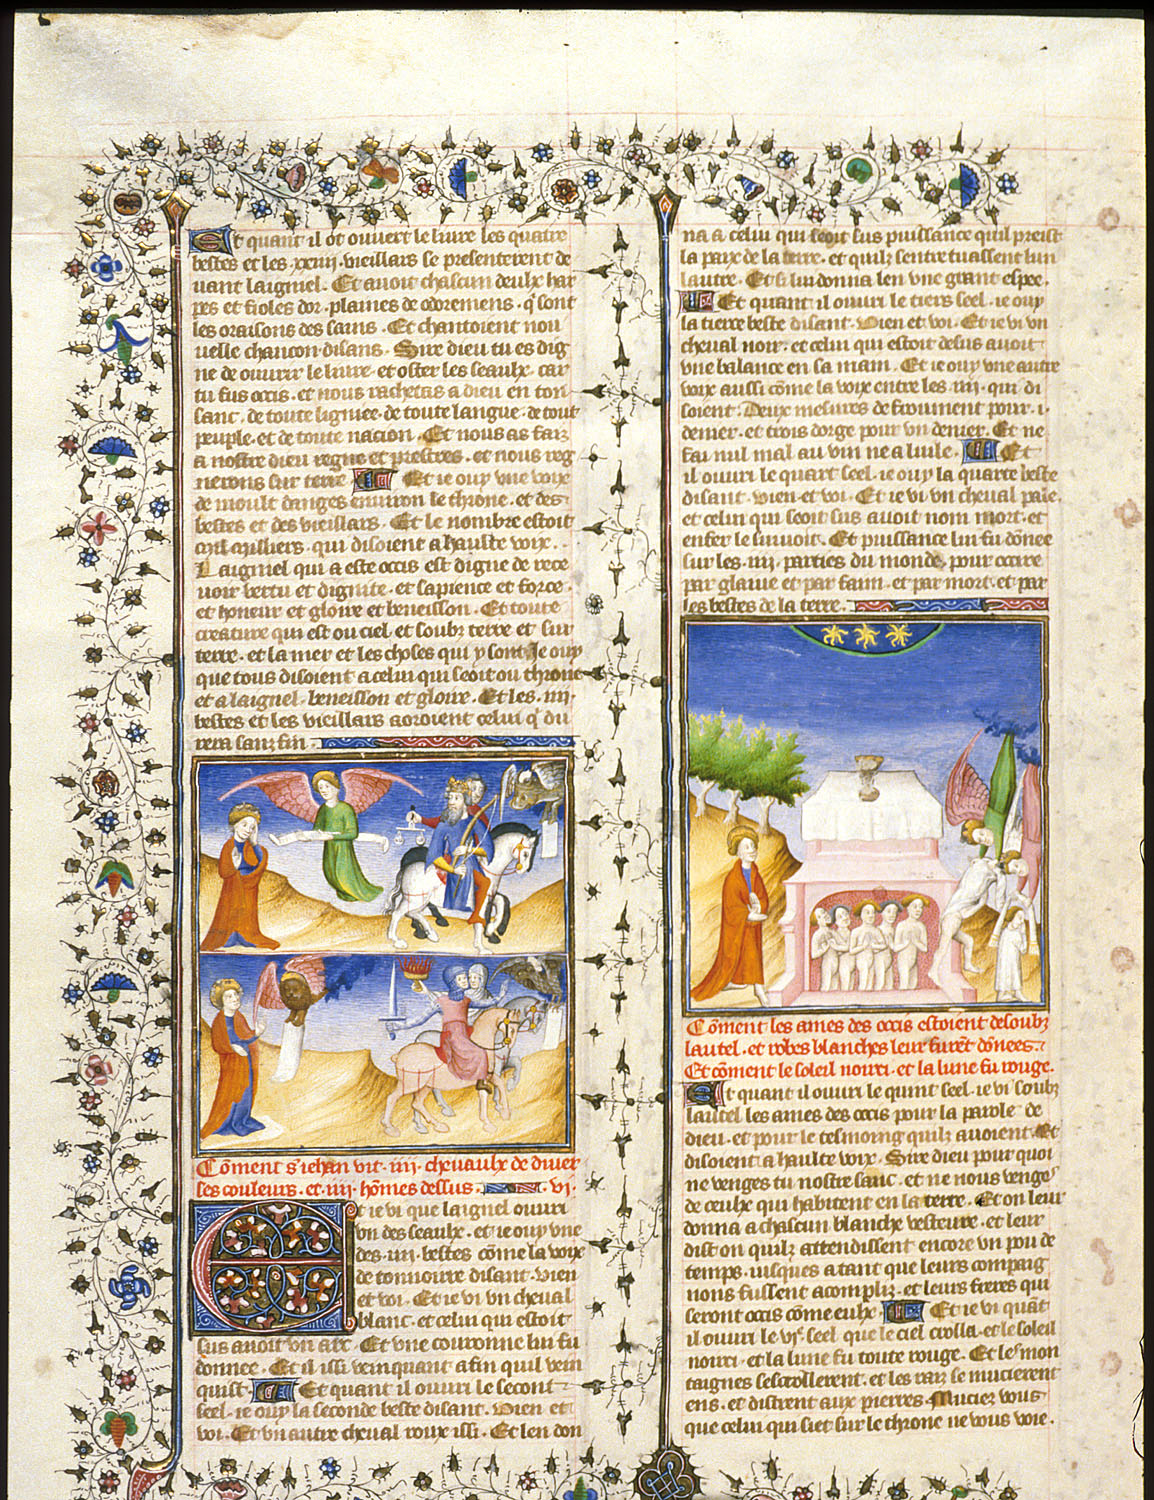 Et quant il ot ouvert le liure les quatre
bestes et les .xxiiij. vieillars se presenterent de
uant laigniel. Et auoit chascun deulx har
pes et fioles dor. plaines de odremens. qͥ sont
les oraisons des sains. Et chantoient nou
uelle chancon disans. Sire dieu tu es dig
ne de ouurir le liure. et oster les seaulx. car
tu fus occis. et nous rachetas a dieu en ton
sanc. de toute ligniee. de toute langue. de tout
peuple. et de toute nacion. Et nous as faiz
a nostre dieu regne et prestres. et nous reg
nerons sur terre Et ie ouy vne voix
de moult danges enuiron le throne. et des
bestes et des vieillars. Et le nombre estoit
mil milliers. qui disoient a haulte voix.
Laigniel qui a este occis est digne de rece
uoir vertu et diginite. et sapience et force.
et honeur et gloire et beneisson. Et toute
creature qui est ou ciel et soubz terre et sur
terre. et la mer et les choses qui y sont Je ouy
que tous disoient a celui qui seoit ou throne
et a laigniel. beneisson et gloire. Et les .iiij.
bestes et les vieillars aoroient celui qͥ du
rera sanz fin
Cõment s'iehan vit .iiij. cheuaulx de diuer
ses couleurs. et .iiij. hõmes dessus. .vi.
Et ie vi que laignel ouuri
vn des seaulx. et ie ouy vne
des .iiij. bestes cõme la voix
de tonnoirre disant. vien
et voi. Et ie vi vn cheual
blanc. et celui qui estoit
sus auoit vn arc. Et vne couronne lui fu
donnee. Et il issi veinquant afin quil vein
quist. Et quant il ouuri le second
seel. ie ouy la seconde beste disant. vien et
voi. Et vn autre cheual roux issi. Et len don
na a celui qui seoit sus puissance quil preist
la paix de la terre. et quilz sentretuassent lun
lautre. Et si lui donna len vne grant espee.
Et quant il ouuri le tiers seel. ie ouy
la tierce beste disant. vien et voi. Et ie vi vn
cheual noir. et celui qui estoit desus auoit
vne balance en sa main. Et ie ouy vne autre
voix aussi cõme la voix entre les .iiij. qui di
soient. Deux mesures de froument pour .i.
denier. et trois dorge pour vn denier. Et ne
fai nul mal au vin ne a luile. Et
il ouuri le quart seel. ie ouy la quarte beste
disant. vien et voi. Et ie vi vn cheual pale.
et celui qui seoit sus auoit nom mort. et
enfer le suiuoit. Et puissance lui fu dõnee
sur les .iiij. parties du monde. pour occire
par glaiue et par faim. et par mort. et par
les bestes de la terre.
Cõment les ames des occis estoient desoubz
lautel. et robes blanches leur furēt dõnees.
Et cõment le soleil noirci. et la lune fu rouge.
Et quant il ouuri le quint seel. ie vi soubz
lautel les ames des occis pour la parole de
dieu. et pour le tesmoing quilz auoient. Et
disoient a haulte voix. Sire dieu pour quoi
ne venges tu nostre sanc. et ne nous venges
de ceulx qui habitent en la terre. Et on leur
donna a chascun blanche vesteure. et leur
dist on quilz attendissent encore vn pou de
temps. iusques a tant que leurs compaig
nons fussent acompliz. et leurs freres qui
seront occis cõme eulx. Et ie vi quāt
il ouuri le vjͤ seel que le ciel crolla. et le soleil
noirci. et la lune fu toute rouge. Et les mon
taignes sescrollerent. et les rais se mucierent
ens. et distrent aux pierres. Muciez vous
que celui qui siet sur le throne ne vous voie.